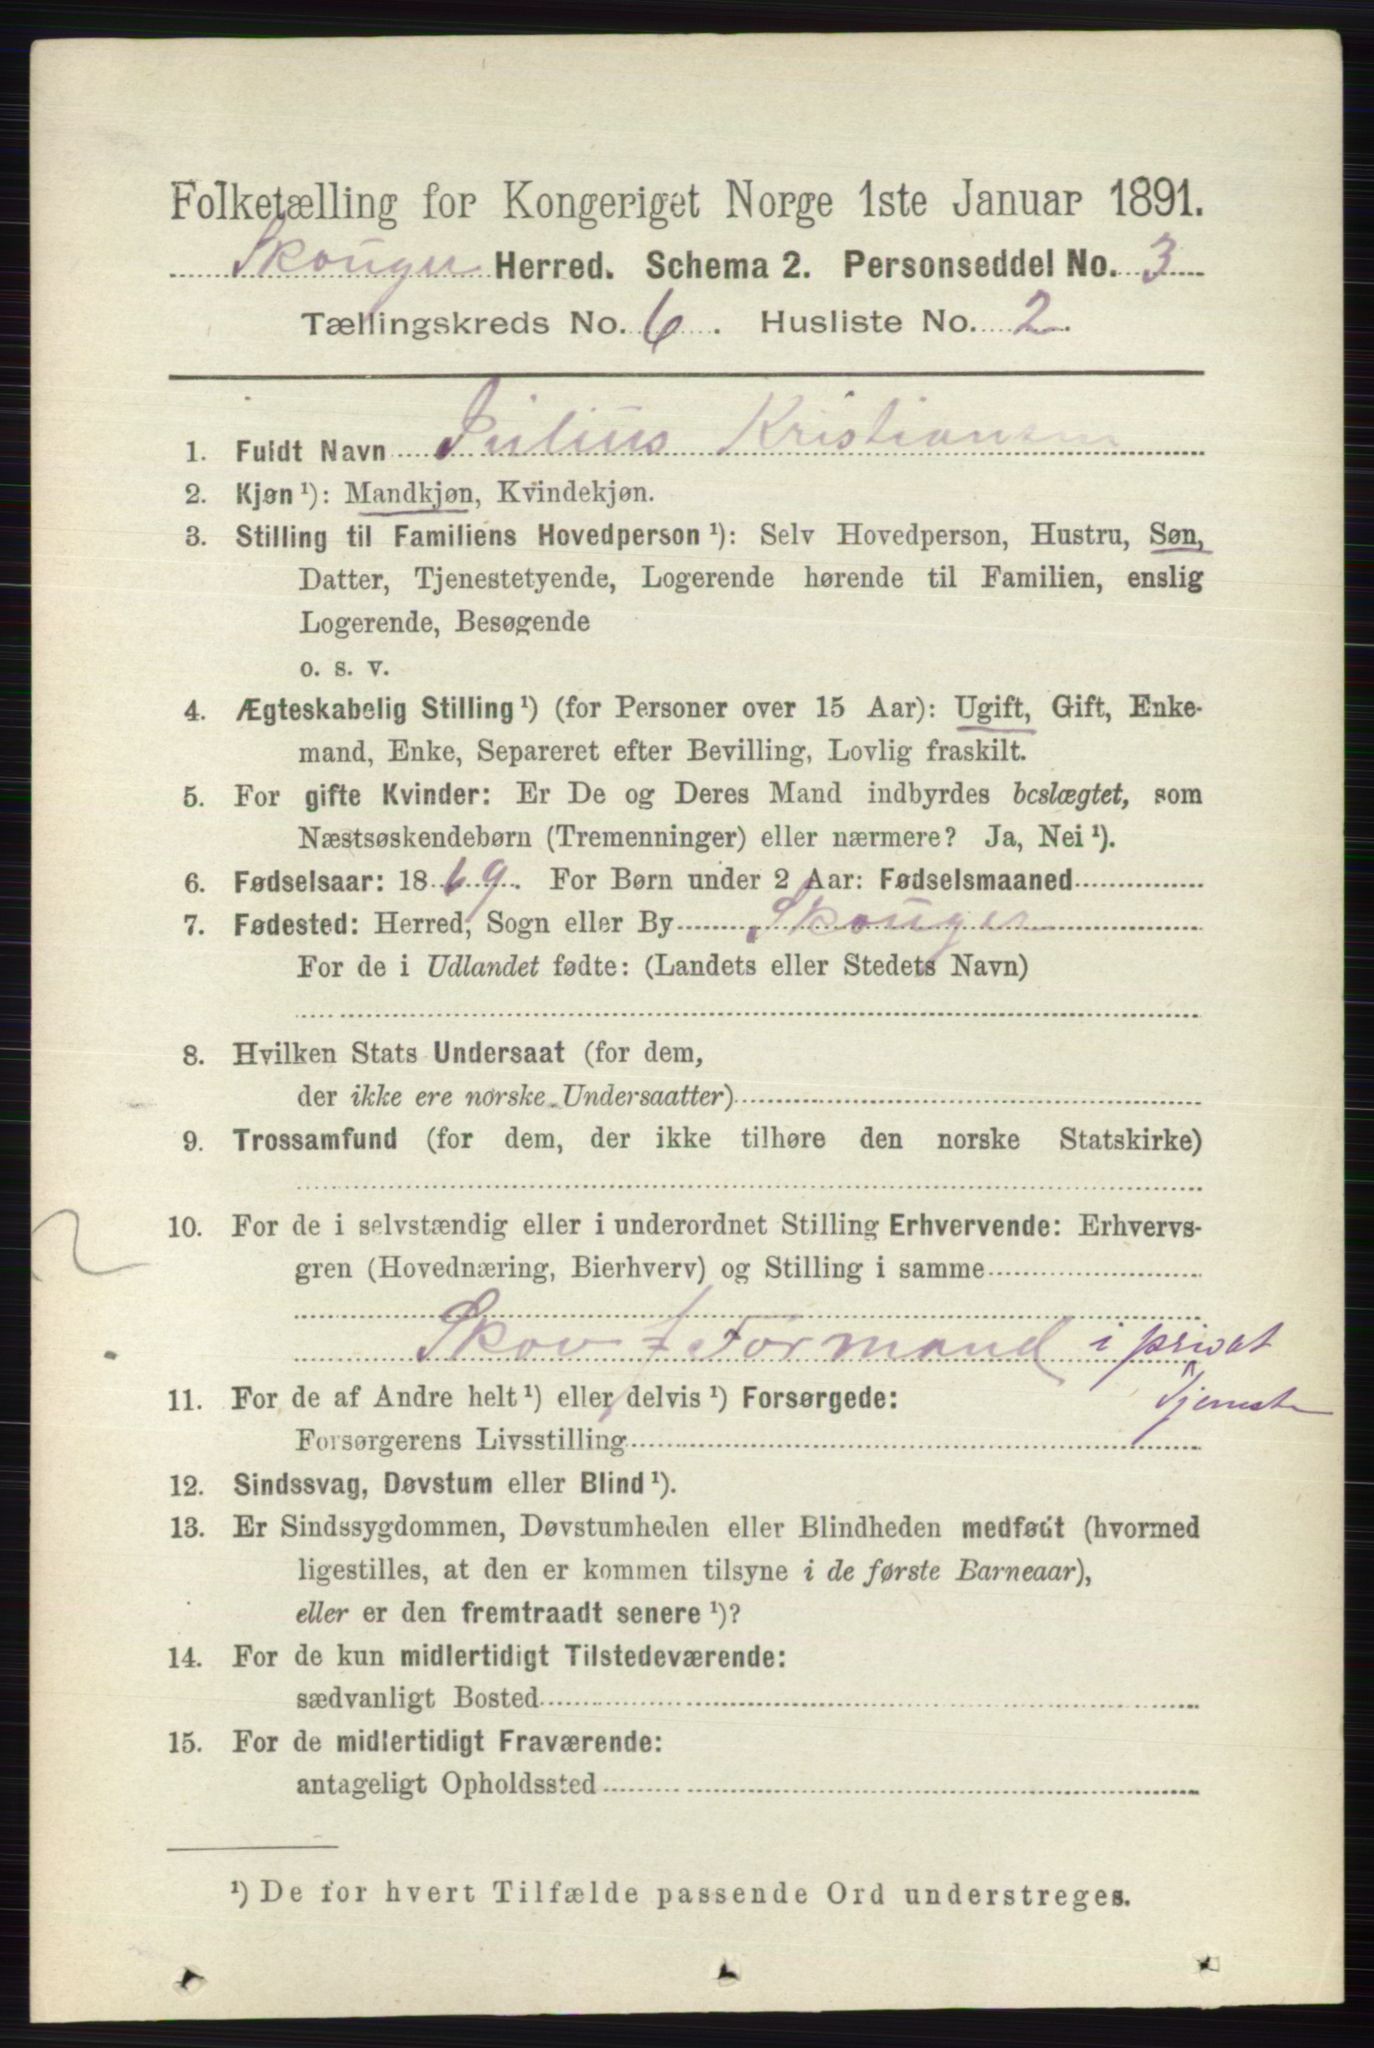 Folketælling for Kongeriget Norge 1ste Januar 1891.
Skouger Herred. Schema 2. Personseddel No. 3
Tællingskreds No. 6. Husliste No. 2.
1. Fuldt Navn Julius Kristiansen
2. Kjøn ¹): Mandkjøn, Kvindekjøn.
3. Stilling til Familiens Hovedperson ¹): Selv Hovedperson, Hustru, Søn,
Datter, Tjenestetyende, Logerende hørende til Familien, enslig
Logerende, Besøgende
o. s. v.
4. Ægteskabelig Stilling ¹) (for Personer over 15 Aar): Ugift, Gift, Enke-
mand, Enke, Separeret efter Bevilling, Lovlig fraskilt.
5. For gifte Kvinder: Er De og Deres Mand indbyrdes beslægtet, som
Næstsøskendebørn (Tremenninger) eller nærmere? Ja, Nei ¹).
6. Fødselsaar: 1869. For Børn under 2 Aar: Fødselsmaaned
7. Fødested: Herred, Sogn eller By Skouger
For de i Udlandet fødte: (Landets eller Stedets Navn)
8. Hvilken Stats Undersaat (for dem,
der ikke ere norske Undersaatter)
9. Trossamfund (for dem, der ikke tilhøre den norske Statskirke)
10. For de i selvstændig eller i underordnet Stilling Erhvervende: Erhvervs-
gren (Hovednæring, Bierhverv) og Stilling i samme
Skov Formand i privat
Tjeneste
11. For de af Andre helt ¹) eller delvis ¹) Forsørgede:
Forsørgerens Livsstilling
12. Sindssvag, Døvstum eller Blind ¹).
13. Er Sindssygdommen, Døvstumheden eller Blindheden medfødt (hvormed
ligestilles, at den er kommen tilsyne i de første Barneaar),
eller er den fremtraadt senere ¹)?
14. For de kun midlertidigt Tilstedeværende:
sædvanligt Bosted
15. For de midlertidigt Fraværende:
antageligt Opholdssted
¹) De for hvert Tilfælde passende Ord understreges.